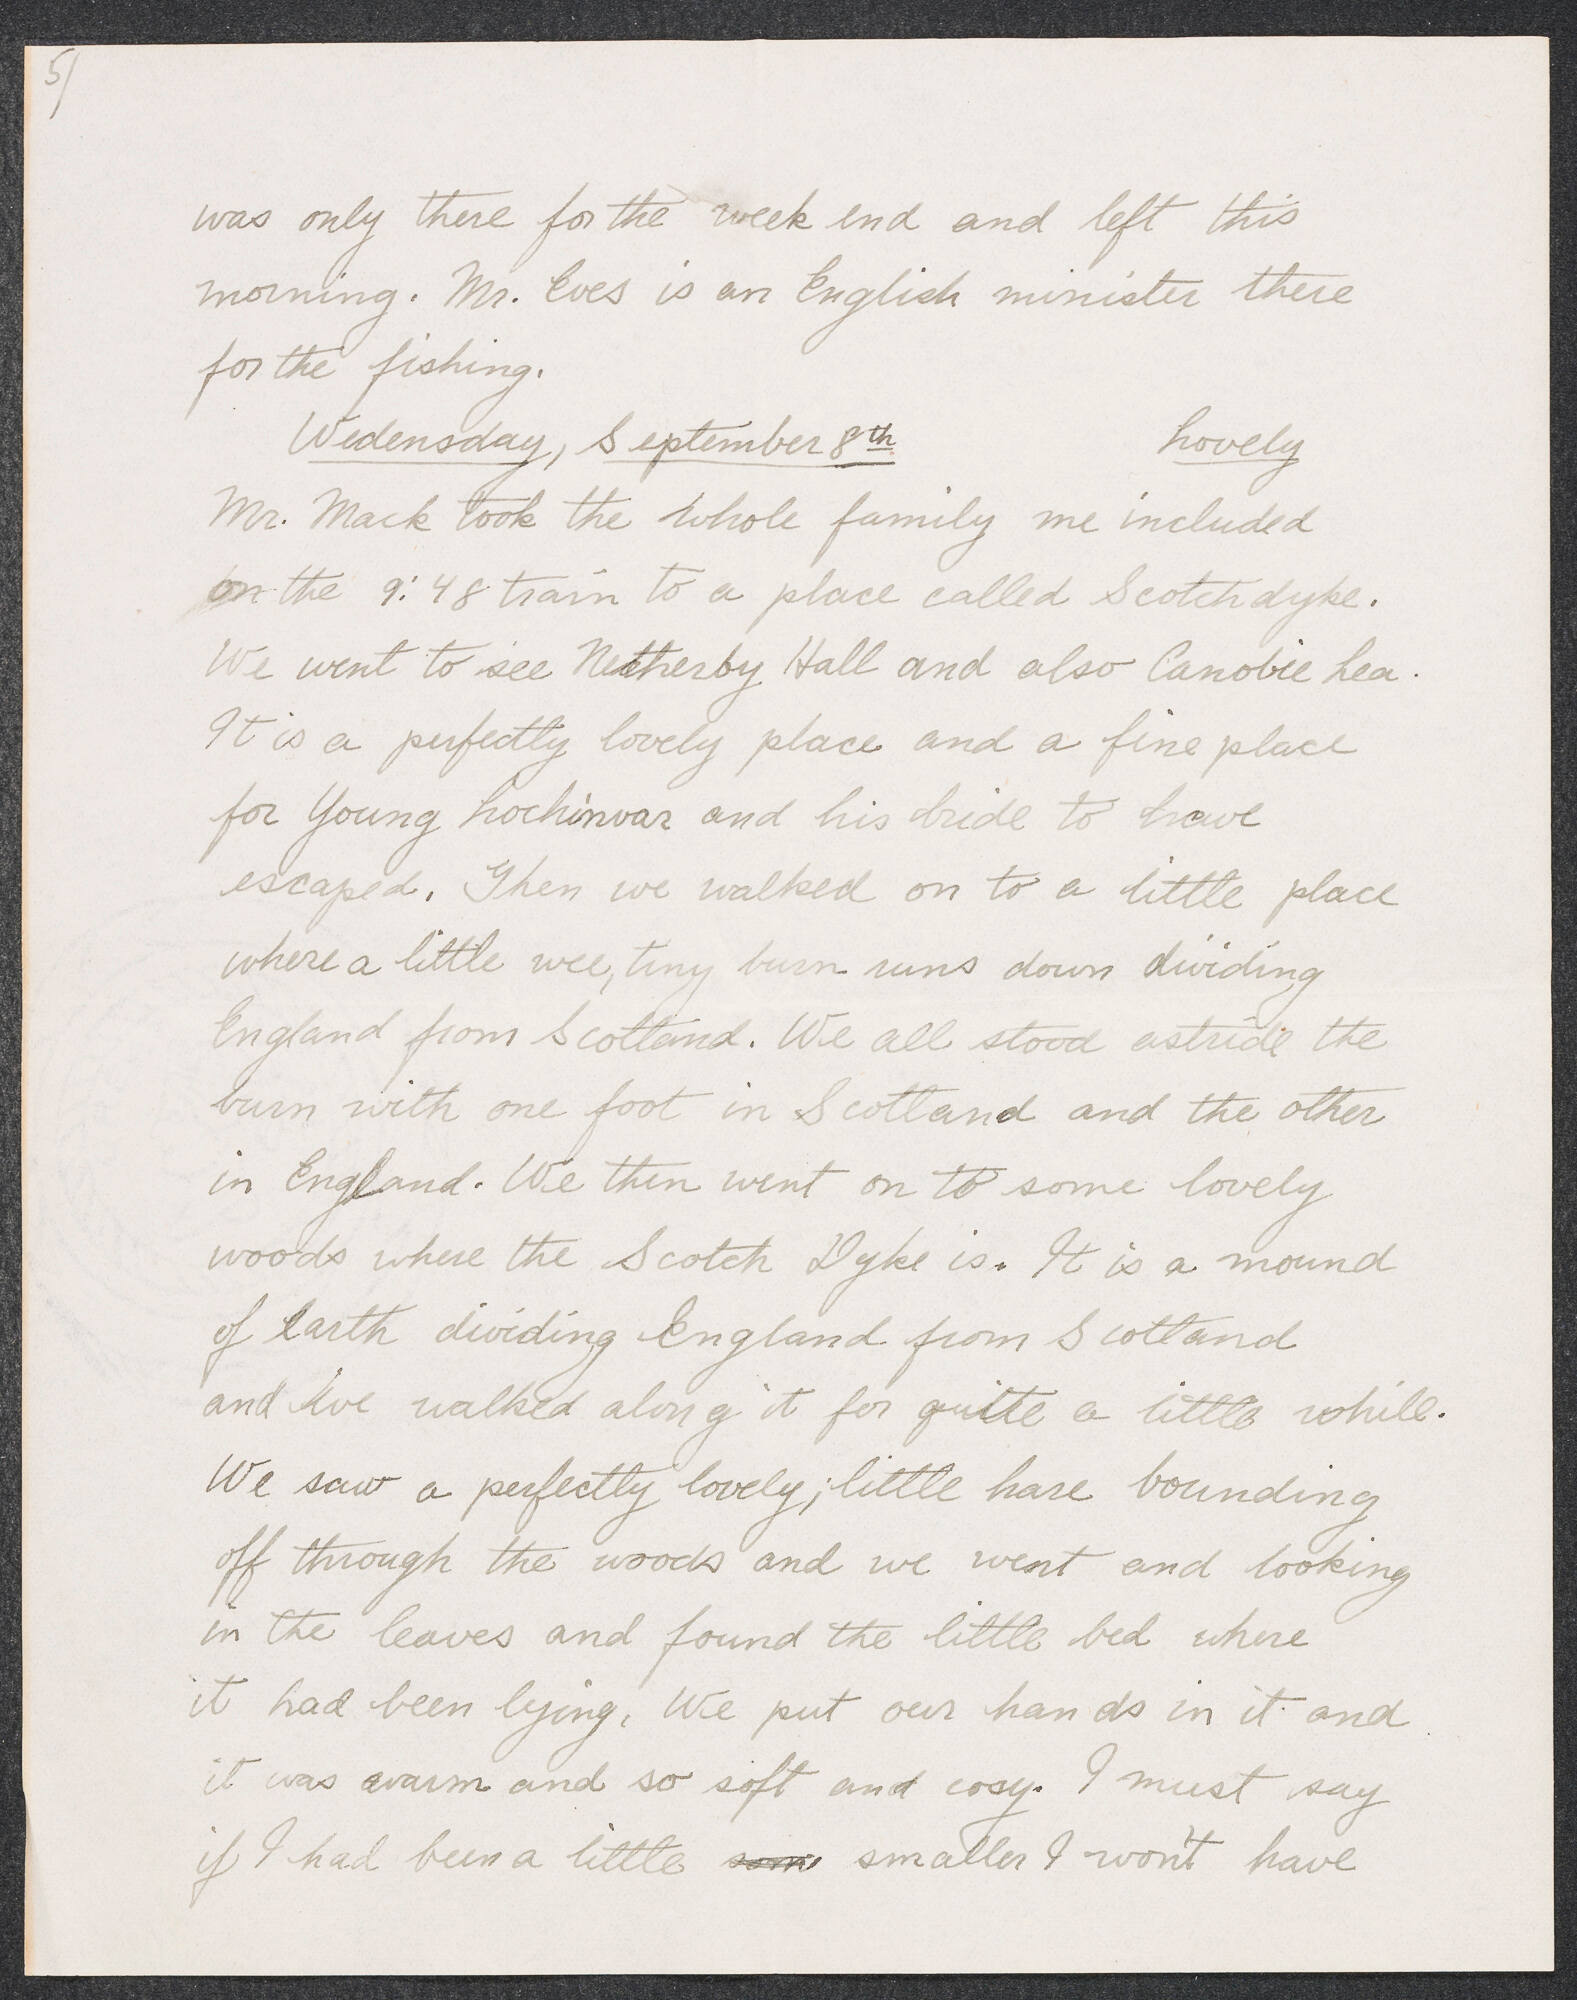 5/
was only there for the week end and left this
morning. Mr. Eves is an English minister there
for the fishing.
Wedensday, September 8th Lovely
Mr. Mack took the whole family me included
on the 9:48 train to a place called Scotchdyke.
We went to see Netherby Hall and also Canobie Lea.
It is a perfectly lovely place and a fine place
for Young Lochinvar and his bride to have
escaped. Then we walked on to a little place
where a little wee, tiny burn runs down dividing
England from Scotland. We all stood astride the
burn with one foot in Scotland and the other
in England. We then went on to some lovely
woods where the Scotch Dyke is. It is a mound
of earth dividing England from Scotland
and we walked along it for quite a little while.
We saw a perfectly lovely, little hare bounding
off through the woods and we went and looking
in the leaves and found the little bed where
it had been lying. We put our hands in it and
it was warm and so soft and cosy. I must say
if I had been a little some smaller I won't have